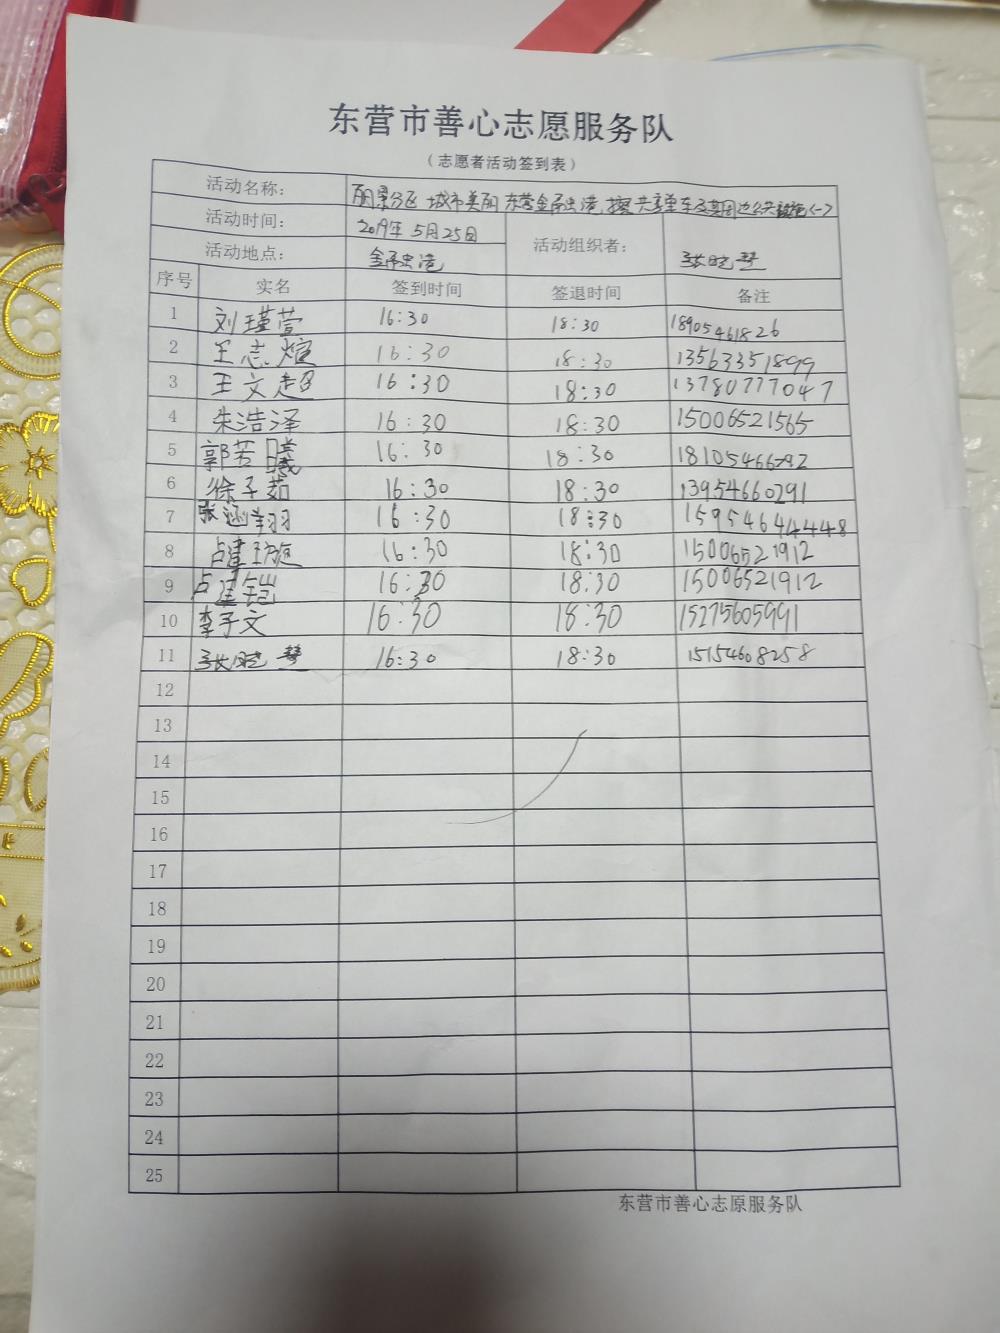 东营市善心志愿服务队
（志愿者活动签到表）
活动名称： 丽景分区 城市美丽 东营金融港 擦共享单车及其周边公共设施（一）
活动时间： 2019年5月25日 活动组织者： 张晓慧
活动地点： 金融港
序号 实名 签到时间 签退时间 备注
1 刘瑾萱 16:30 18:30 18905461826
2 王志煊 16:30 18:30 13563351899
3 王文超 16:30 18:30 13780777047
4 朱浩泽 16:30 18:30 15006521565
5 郭若曦 16:30 18:30
6 徐子茹 16:30 18:30 13954660291
7 张涵翔 16:30 18:30 15954644448
8 卢建璇 16:30 18:30 15006521912
9 卢建铠 16:30 18:30 15006521912
10 李子文 16:30 18:30 15275605991
11 张晓慧 16:30 18:30 15154608258
12
13
14
15
16
17
18
19
20
21
22
23
24
25
东营市善心志原服务队